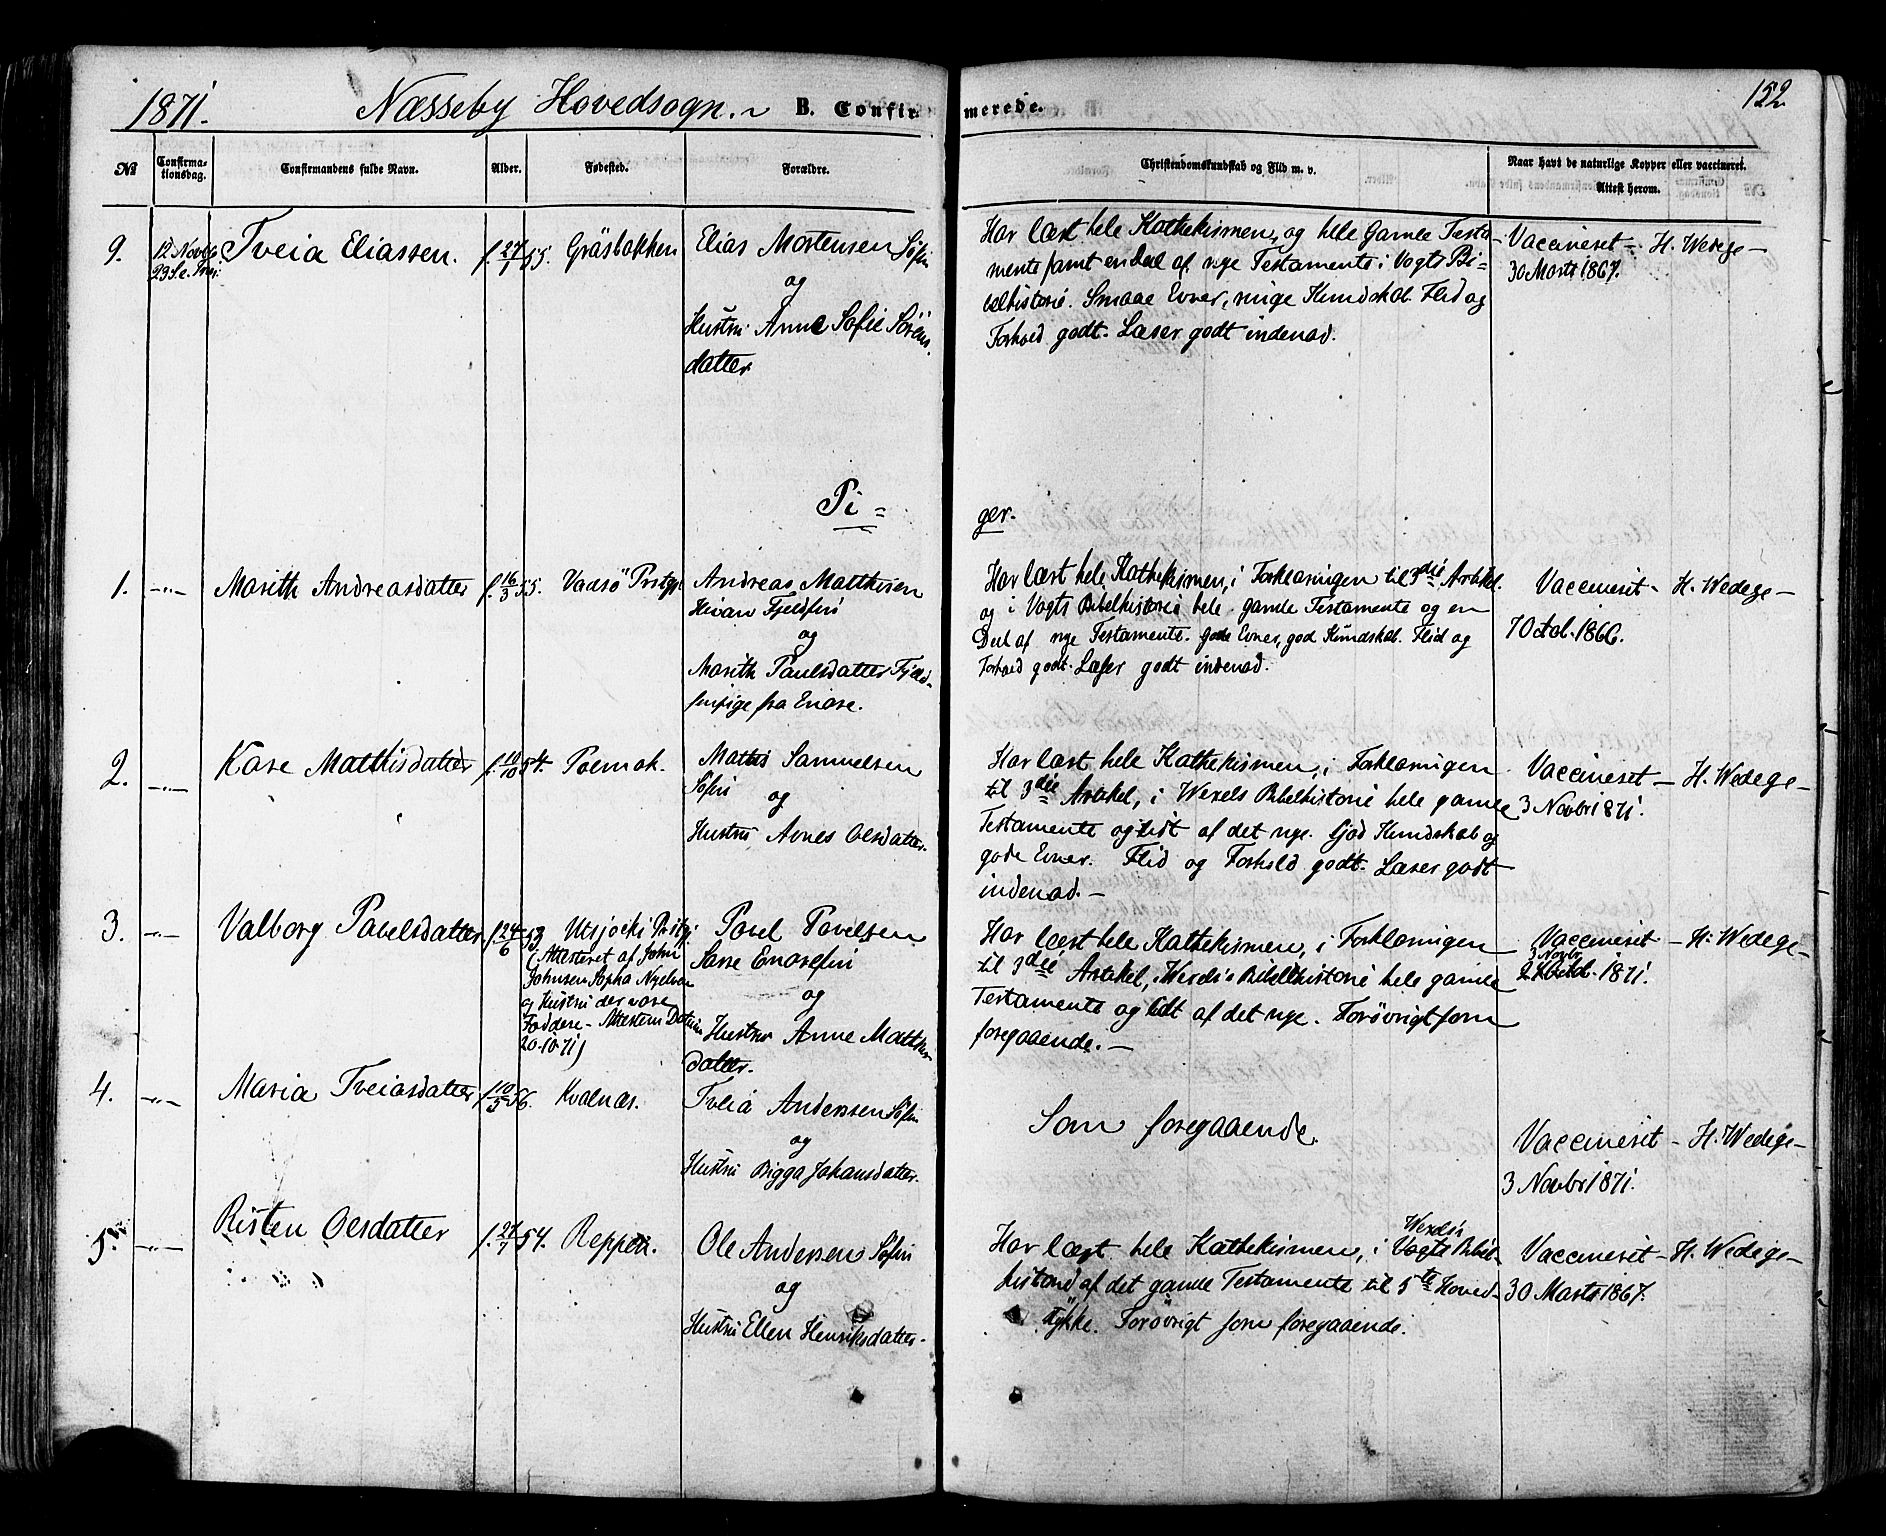 1871. Næsseby Hovedsogn. B. Confirmerede. 152
No Confirmationsdag. Confirmandens fulde Navn. Alder. Fødested. Forældre. Christendomskundskab og Flid m. v. Naar havt de naturlige Kopper eller vaccineret. Attest herom.
9. 12 Novbr 23 S. e. Trin: Tveia Eliassen. f. 27/1 55. Gräsbakken Elias Mortensen Söfin
og
Hustru Anne Sofie Sörens
datter
Har læst hele Kathekismen, og hele Gamle Testa-
mente samt en Deel af nye Testamente i Vogts Bi-
belhistorie. Smaae Evner, ringe Kundskab. Flid og
Forhold godt. Læser godt indenad.
Vaccineret - H. Wedege -
30 Marts 1867.
Pi = ger.
1. -"- Marith Andreasdatter f. 16/3 55. Vadsö Prstgj. Andreas Matthisen
Fjeldfin
og
Marith Paulsdatter Fjeld-
finpige fra Enare.
Har læst hele Kathekismen, i Forklaringen til 3die Artikel
og i Vogts Bibelhistorie hele gamle Testamente og en
Deel af nye Testamente. Gode Evner, god Kundskab. Flid og
Forhold godt. Læser godt indenad.
Vaccineret - H. Wedege -
7 Octob. 1866.
2. -"- Kare Matthisdatter f. 10/10 54. Polmak. Mathis Samuelsen
Söfin
og
Hustru Avnes Olsdatter.
Har læst hele Kathekismen, i Forklaringen
til 3die Artikel, i Wexels Bibelhistorie hele gamle
Testamente og lidt af det nye. God Kundskab og
gode Evner. Flid og Forhold godt. Læser godt
indenad. -
Vaccineret - H. Wedege -
3 Novbr 1871.
3. -"- Valborg Pavelsdatter f. 24/6 53. Utsjocki Prstgj.
(Attesteret af John
Johnsen Sopka Nyelven
og Hustru der vare
Faddere - Attestens Datum
20-10-71)
Pavel Pavelsen
Sarre Enarefin
og
Hustru Anne Matthis
datter.
Har læst hele Kathekismen, i Forklaringen
til 3die Artikel, i Wexels Bibelhistorie hele gamle
Testamente og lidt af det nye. Forövrigt som
foregaaende. -
Vaccineret - H. Wedege -
3 Novbr
1871.
4. -"- Maria Tveiasdatter f. 10/5 56. Kvalnæs. Tveia Andersen Söfin
og
Hustru Bigga Johansdatter.
Som foregaaende.
Vaccineret - H. Wedege -
3 Novbr 1871.
5. -"- Risten Olsdatter f. 27/7 54. Reppen. Ole Andersen Söfin
og
Hustru Ellen Henriksdatter.
Wexels
Har læst hele Kathekismen, i Vogts Bibel-
historie af det gamle Testamente til 5te Hoved-
stykke. Forövrigt som foregaaende.
Vaccineret - H. Wedege -
30 Marts 1867.